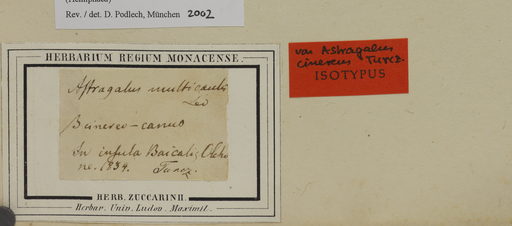 (Hemiphaca)
Rev. / det. D. Podlech, München 2002
HERBARIUM REGIUM MONACENSE.
Astragalus multicaulis
Led
β cinereo-canus
In insula Baicalis Olcho
ne. 1834. Turcz.
HERB. ZUCCARINII.
Herbar. Univ. Ludov. Maximil.
var Astragalus
cinereus Turcz.
ISOTYPUS